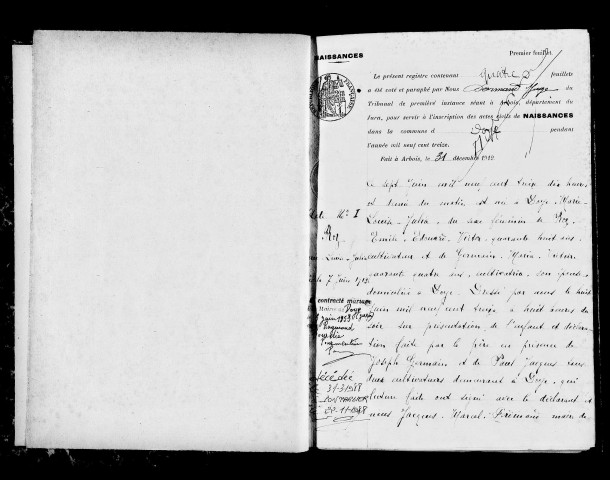 NAISSANCES
Premier feuillet.
Le présent registre contenant quatre feuillets
a été coté et paraphé par Nous Juge du
Tribunal de première instance séant à Arbois, département du
Jura, pour servir à l'inscription des actes civils de NAISSANCES
dans la commune d Doye pendant
l'année mil neuf cent treize.
Fait à Arbois, le 31 décembre 1912.
Le sept Juin mil neuf cent treize dix heures
et demie du matin est née à Doye Marie
Louise Julia, du sexe féminin de
Emile Edouard Victor quarante huit ans,
cultivateur et de Germain Maria
quarante quatre ans, cultivatrice, son épouse
domiciliés à Doye. Dressé par nous le huit
Juin mil neuf cent treize à huit heures du
soir sur présentation de l'enfant et déclara
tion faite par le père en présence de
Joseph Germain et de Paul Jacques tous
deux cultivateurs demeurant à Doye, qui
lecture faite ont signé avec le déclarant et
nous Jacques, Marcel, maire de
No 1
Louise Julia
le 7 Juin
contracté mariage
Mairie de Doye
juin 1933
Raymond
décédée
31-3-1988
PONTARLIER